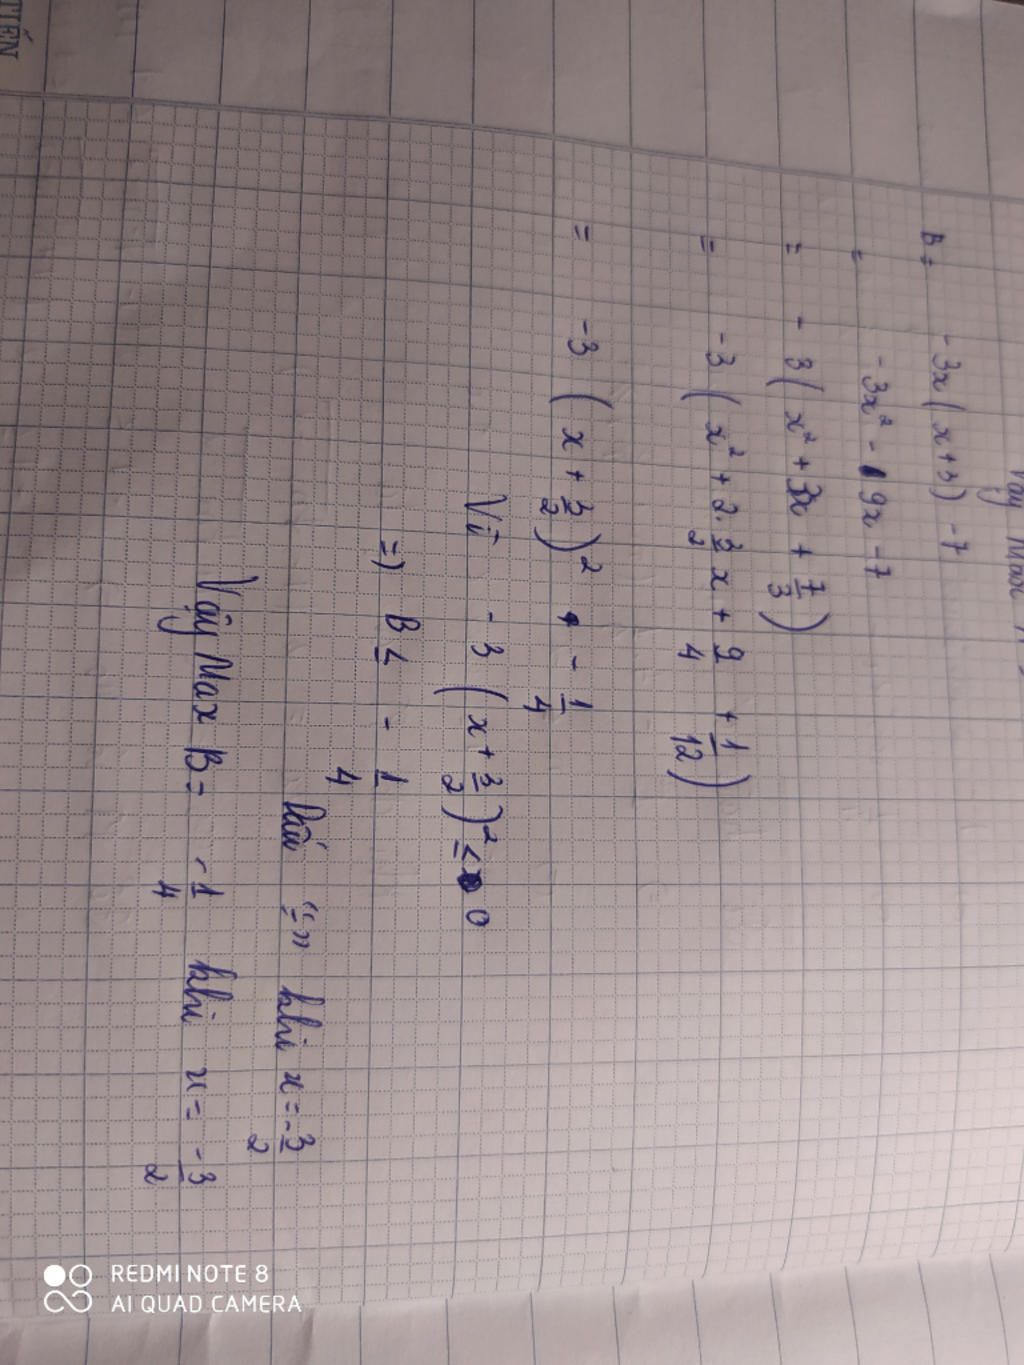 Vậy Max
B = - 3x ( x + 3 ) - 7
= - 3x² - 9x - 7
= - 3 ( x² + 3x + 7/3 )
= -3 ( x² + 2 . 3/2 x + 9/4 + 1/12 )
= -3 ( x + 3/2 )² - 1/4
Vì - 3 ( x + 3/2 )² ≤ 0
=) B ≤ - 1/4
Dấu "=" khi x = -3/2
Vậy Max B = -1/4 khi x = -3/2
TIẾN
REDMI NOTE 8
AI QUAD CAMERA